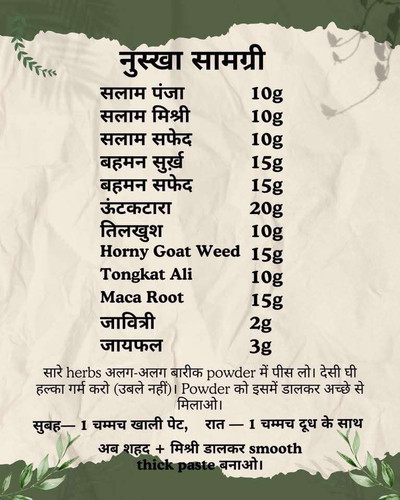 नुस्खा सामग्री
सलाम पंजा 10g
सलाम मिश्री 10g
सलाम सफेद 10g
बहमन सुर्ख़ 15g
बहमन सफेद 15g
ऊंटकटारा 20g
तिलखुश 10g
Horny Goat Weed 15g
Tongkat Ali 10g
Maca Root 15g
जावित्री 2g
जायफल 3g
सारे herbs अलग-अलग बारीक powder में पीस लो। देसी घी
हल्का गर्म करो (उबले नहीं)। Powder को इसमें डालकर अच्छे से
मिलाओ।
सुबह— 1 चम्मच खाली पेट, रात — 1 चम्मच दूध के साथ
अब शहद + मिश्री डालकर smooth
thick paste बनाओ।